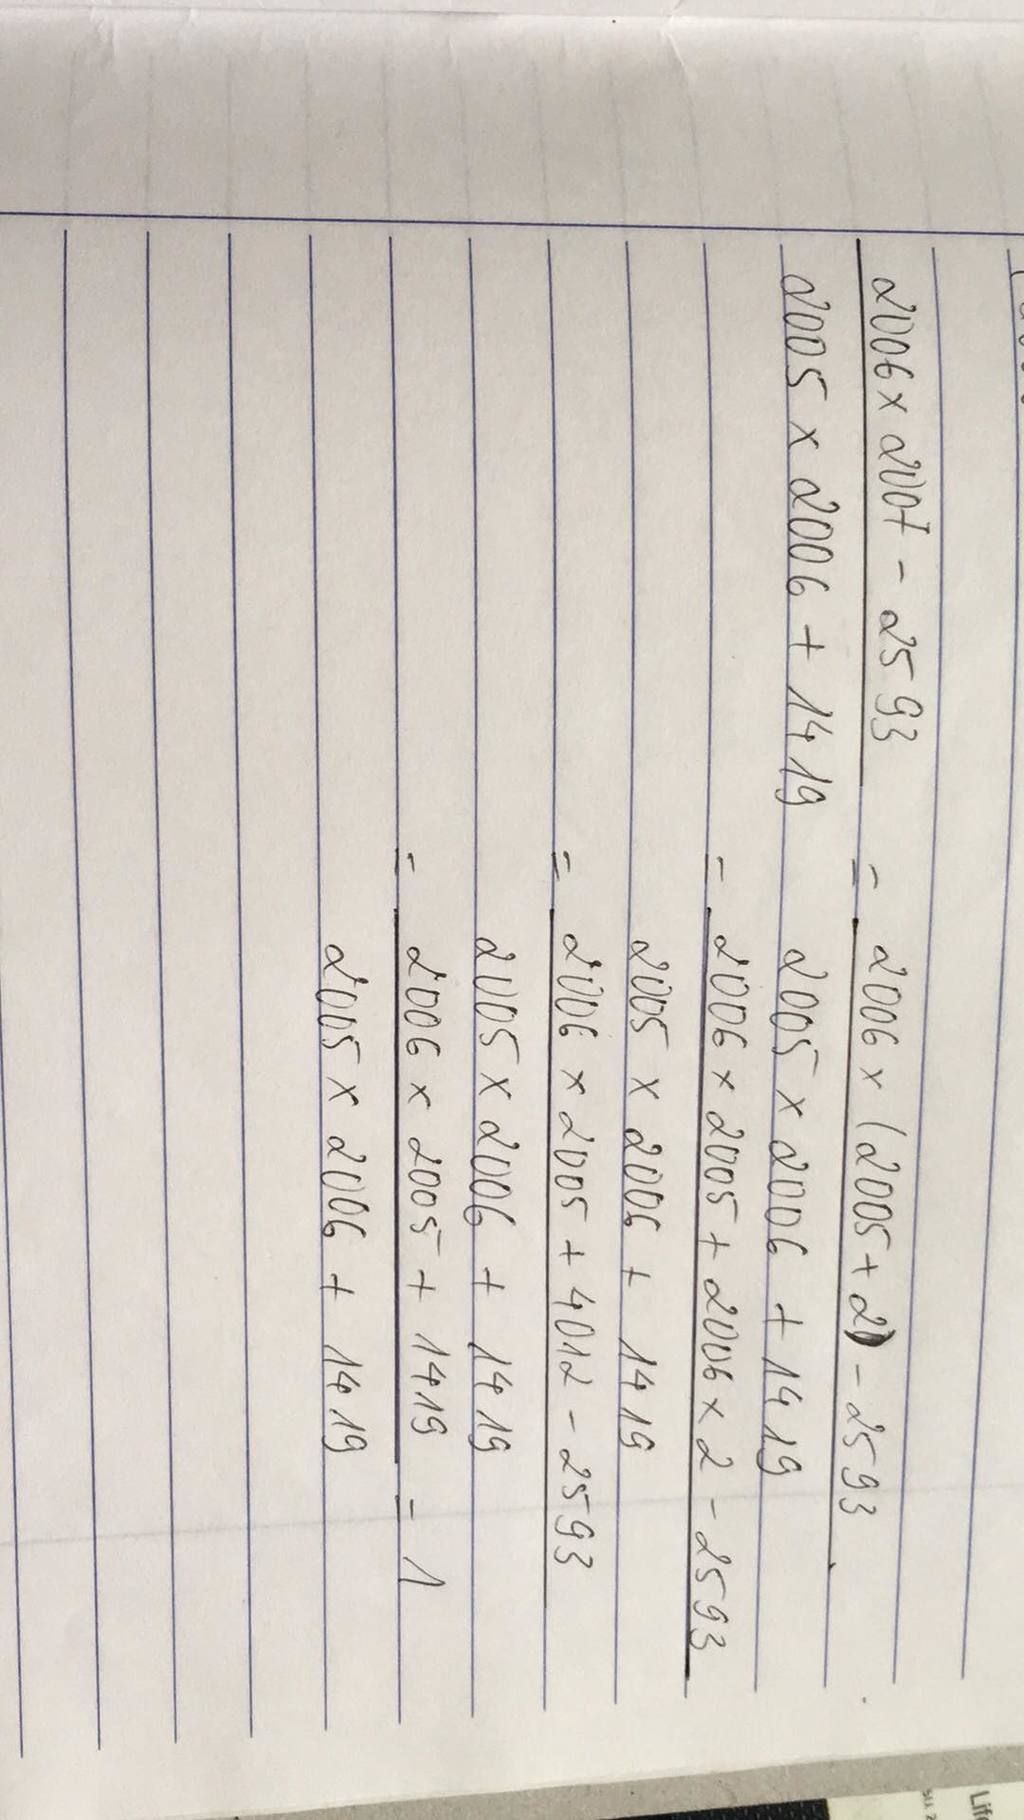 2006 x 2007 - 2593 = 2006 x (2005 + 2) - 2593
2005 x 2006 + 1419 2005 x 2006 + 1419
= 2006 x 2005 + 2006 x 2 - 2593
2005 x 2006 + 1419
= 2006 x 2005 + 4012 - 2593
2005 x 2006 + 1419
= 2006 x 2005 + 1419 = 1
2005 x 2006 + 1419